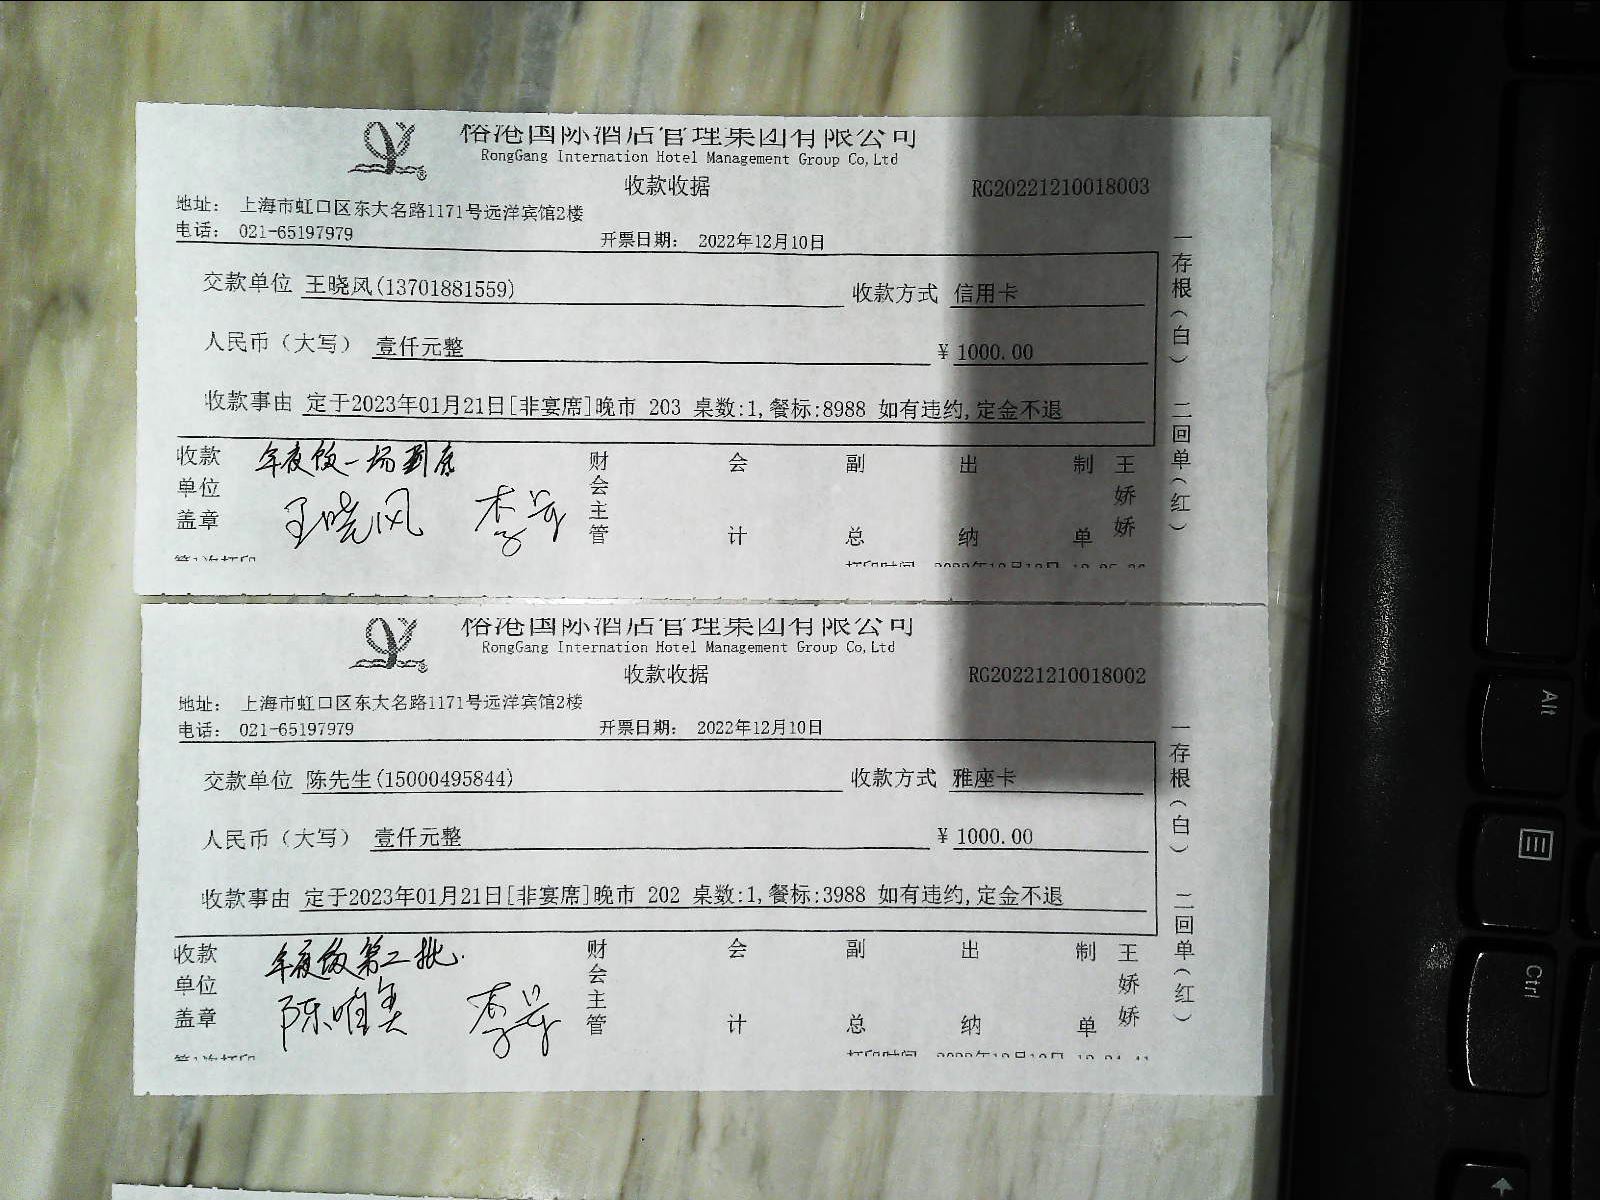 榕港国际酒店管理集团有限公司
RongGang Internation Hotel Management Group Co,Ltd
收款收据
RG20221210018003
地址： 上海市虹口区东大名路1171号远洋宾馆2楼
电话： 021-65197979
开票日期： 2022年12月10日
交款单位 王晓风(13701881559)
收款方式 信用卡
人民币（大写） 壹仟元整
¥ 1000.00
收款事由 定于2023年01月21日[非宴席]晚市 203 桌数:1,餐标:8988 如有违约,定金不退
一存根（白） 二回单（红）
收款单位盖章
年夜饭一场到底
王晓风
财会主管
会计
副总
出纳
制单
王娇娇
第1次打印
打印时间
榕港国际酒店管理集团有限公司
RongGang Internation Hotel Management Group Co,Ltd
收款收据
RG20221210018002
地址： 上海市虹口区东大名路1171号远洋宾馆2楼
电话： 021-65197979
开票日期： 2022年12月10日
交款单位 陈先生(15000495844)
收款方式 雅座卡
人民币（大写） 壹仟元整
¥ 1000.00
收款事由 定于2023年01月21日[非宴席]晚市 202 桌数:1,餐标:3988 如有违约,定金不退
一存根（白） 二回单（红）
收款单位盖章
年夜饭第二批.
财会主管
会计
副总
出纳
制单
王娇娇
第1次打印
打印时间
Alt
Ctrl